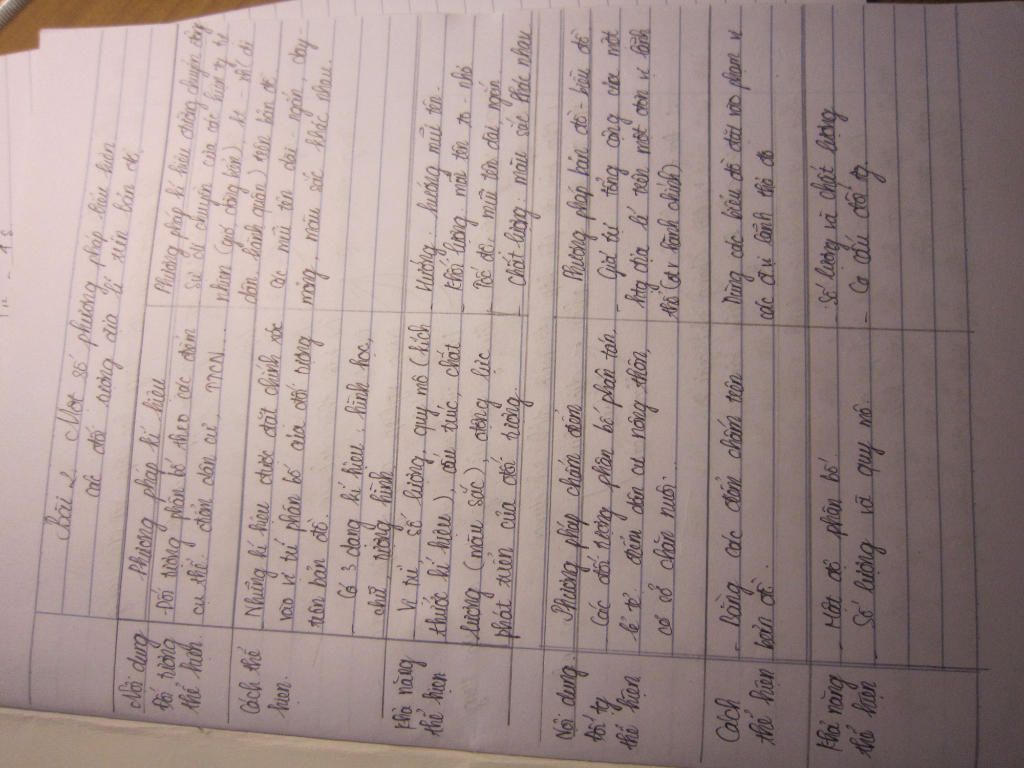 Bài 2. Một số phương pháp biểu hiện
các đối tượng địa lí trên bản đồ.
Nội dung
Phương pháp kí hiệu
Phương pháp kí hiệu đường chuyển động
Đối tượng
thể hiện.
Đối tượng phân bố theo các điểm
cụ thể: điểm dân cư, TTCN
Sự di chuyển của các hiện tg tự
nhiên (gió, dòng biển), kt - xh (di
dân, hành quân) trên bản đồ
Cách thể
hiện.
Những kí hiệu được đặt chính xác
vào vị trí phân bố của đối tượng
trên bản đồ.
Có 3 dạng kí hiệu: hình học,
chữ, tượng hình
Các mũi tên dài - ngắn, dày -
mỏng, màu sắc khác nhau.
Khả năng
thể hiện
Vị trí, số lượng, quy mô (kích
thước kí hiệu), cấu trúc, chất
lượng (màu sắc), động lực
phát triển của đối tượng.
Hướng: hướng mũi tên.
Khối lượng: mũi tên to - nhỏ
Tốc độ: mũi tên dài ngắn
Chất lượng: màu sắc khác nhau
Nội dung
Phương pháp chấm điểm
Phương pháp bản đồ - biểu đồ
Đối tg
thể hiện
Các đối tượng phân bố phân tán,
lẻ tẻ: điểm dân cư nông thôn,
cơ sở chăn nuôi
Giá trị tổng cộng của một
htg địa lí trên một đơn vị lãnh
thổ (đvị hành chính)
Cách
thể hiện
- Bằng các điểm chấm trên
bản đồ.
Dùng các biểu đồ đặt vào phạm vi
các đvị lãnh thổ đó
Khả năng
thể hiện
- Mật độ phân bố
- Số lượng và quy mô.
- Số lượng và chất lượng
- Cơ cấu đối tg.